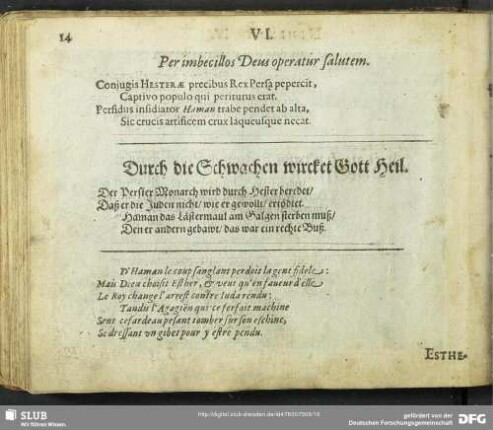 14
VI.
Per imbecillos Deus operatur salutem.
Conjugis HESTERÆ precibus Rex Persą pepercit,
Captivo populo qui periturus erat.
Perfidus insidiator Haman trabe pendet ab alta,
Sic crucis artificem crux laqueusque necat.
Durch die Schwachen wircket Gott Heil.
Der Persier Monarch wird durch Hester beredet/
Daß er die Juden nicht/ wie er gewollt/ ertödtet.
Haman das Lästermaul am Galgen sterben muß/
Den er andern gebawt/ das war ein rechte Buß.
D'Haman le coup sanglant perdoit la gent fidele:
Mais Dieu choisit Esther, & veut qu'en faueur d'elle
Le Roy change l'arrest contre Iuda rendu:
Tandis l'Agagien qui ce forfait machine
Sent ce fardeau pesant tomber sur son eschine,
Se dressant vn gibet pour y estre pendu.
ESTHE-
SLUB
Wir führen Wissen.
http://digital.slub-dresden.de/id478507909/16
gefördert von der
Deutschen Forschungsgemeinschaft
DFG